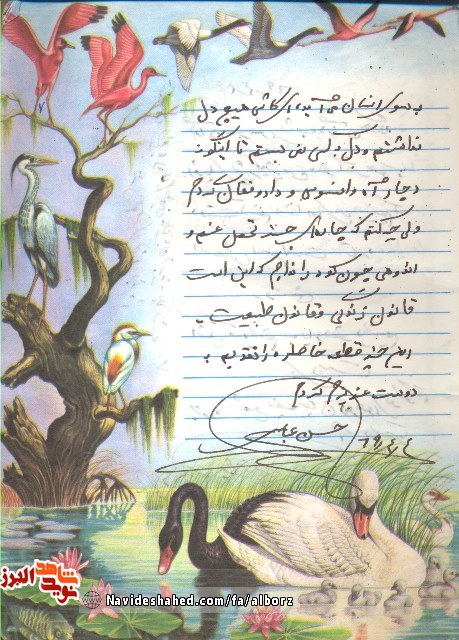 ۷
بسوی انسان می آید، ای کاش هیچ دل
نداشتم و دل به کسی نمی بستم تا اینگونه
دچار آه و افسوس و داد و فغان می کردم
ولی چه کنم که چاره ای جز تحمل غم و
اندوهی چون کوه را ندارم که این است
قانون زندگی و قانون طبیعت.
این چند قطعه خاطره را تقدیم به
دوست عزیزم کردم
حسن عباسی
۶۹/۴/۴
شاهد
نوید
البرز
Navideshahed.com/fa/alborz